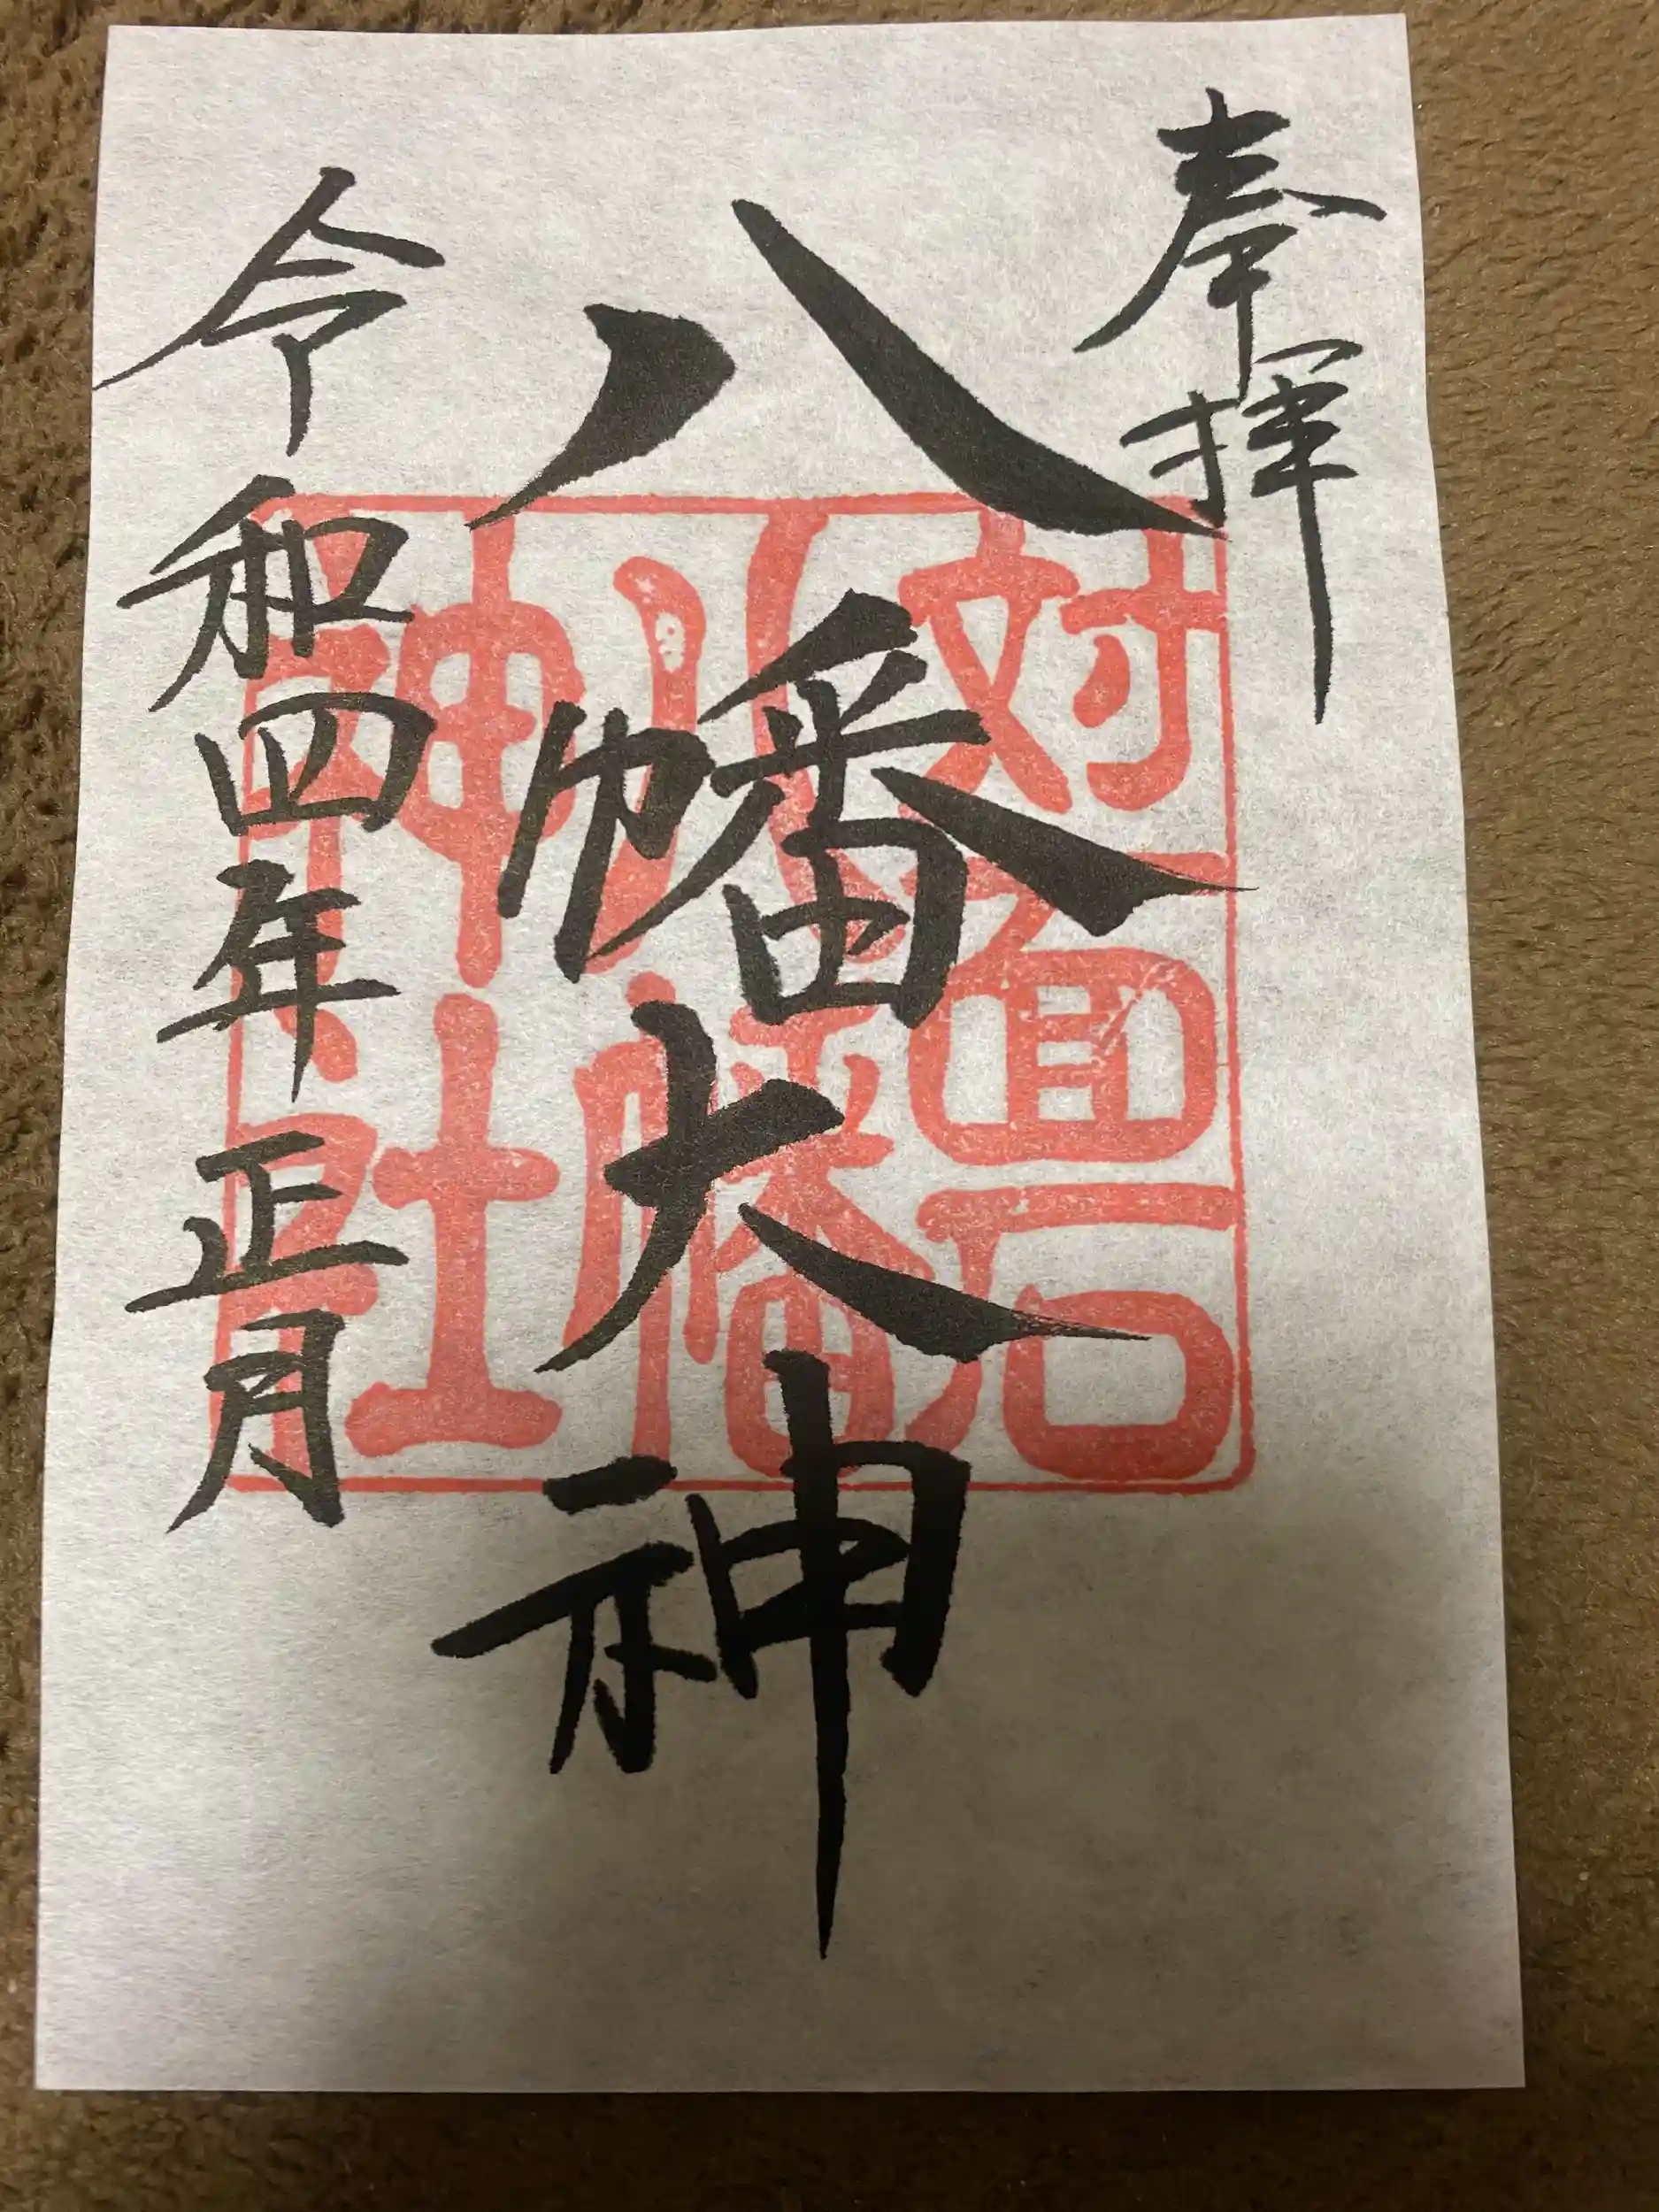 奉拝
八幡大神
令和四年正月
対面石
八幡
神社